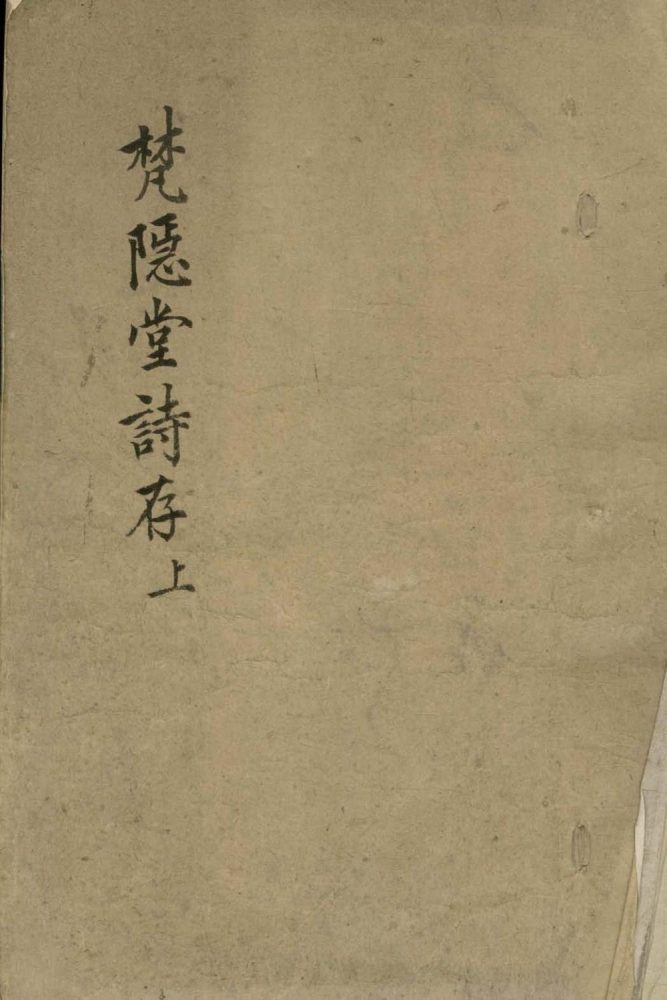 梵隠堂詩存上